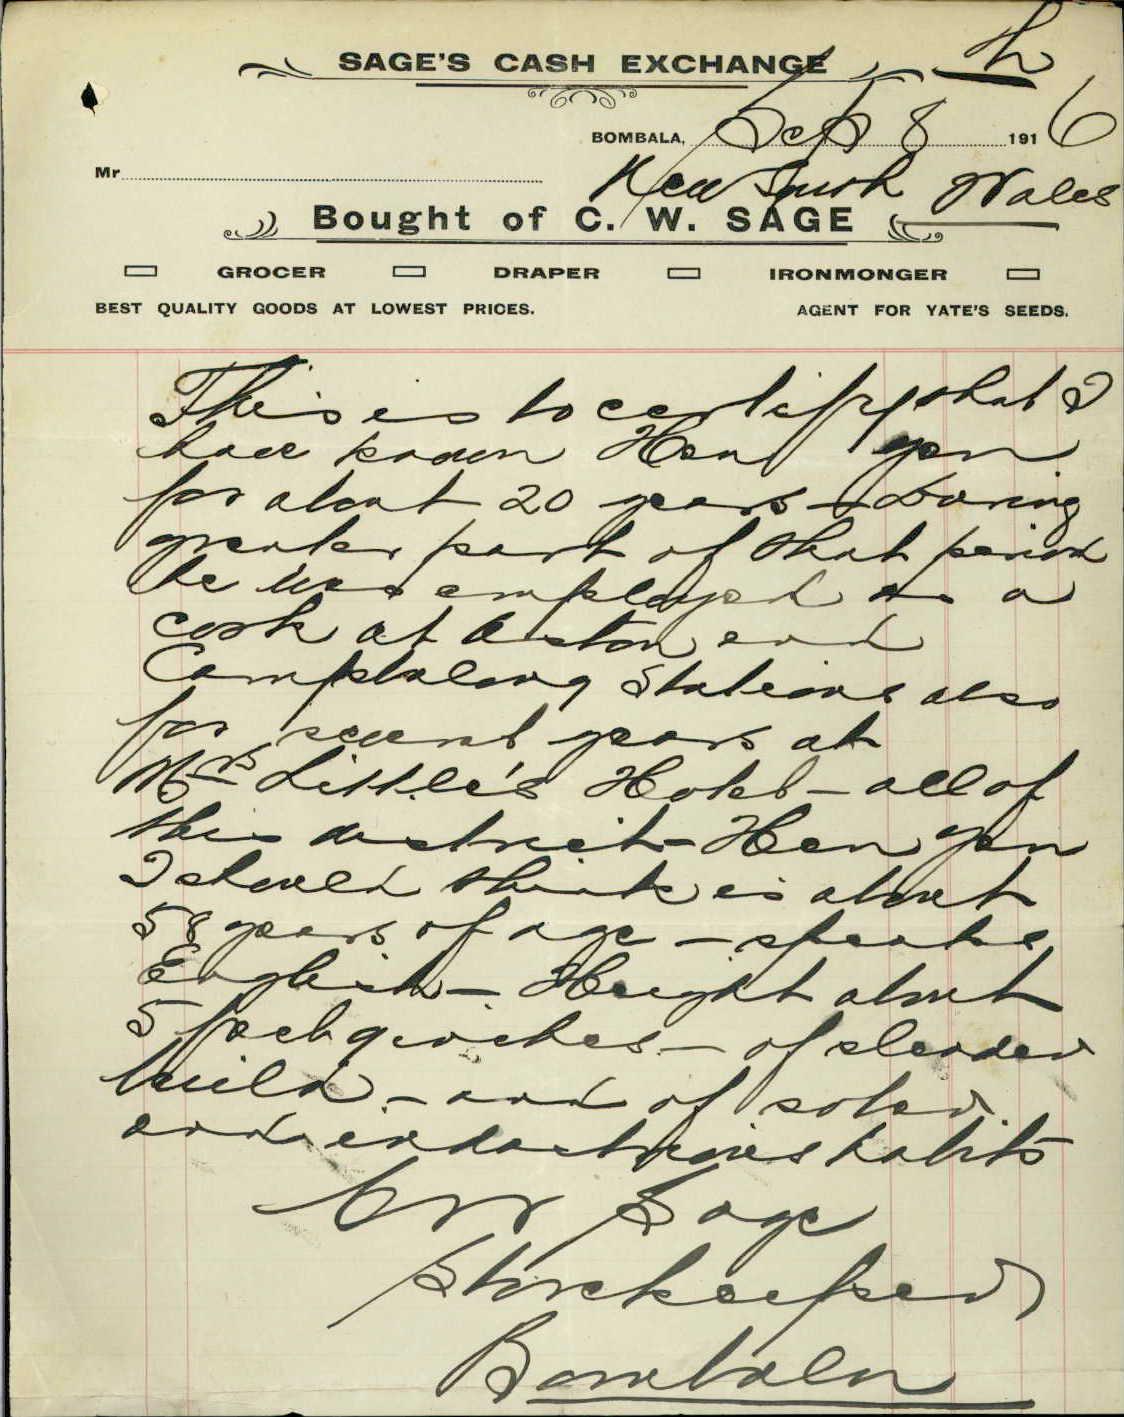 SAGE'S CASH EXCHANGE
BOMBALA, Sept 8 1916
Mr
New South Wales
Bought of C. W. SAGE
GROCER DRAPER IRONMONGER
BEST QUALITY GOODS AT LOWEST PRICES. AGENT FOR YATE'S SEEDS.
This is to certify that I
have known Hen Yen
for about 20 years - During
greater part of that period
he was employed as a
cook at and
Stations also
for several years at
Mrs Little's Hotel - all of
this district - Hen Yen
I should think is about
58 years of age - speaks
English - Height about
5 feet 9 inches - of slender
build - and of sober
and industrious habits
C W Sage
Storekeeper
Bombala